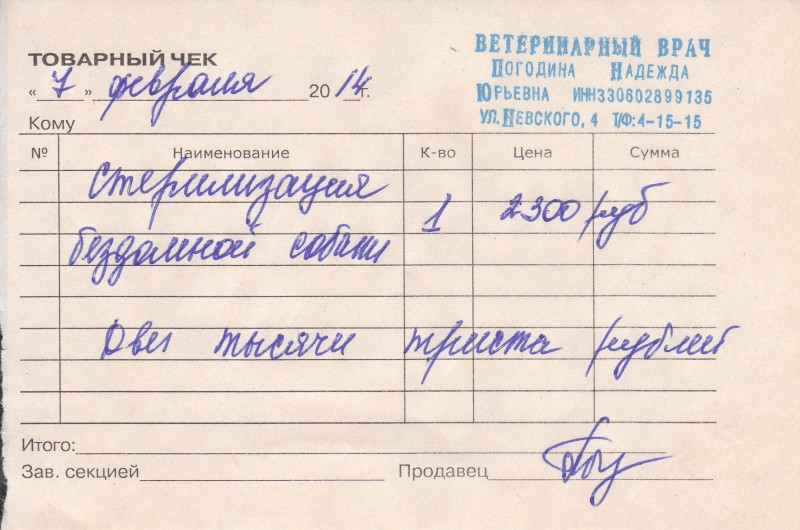 ВЕТЕРИНАРНЫЙ ВРАЧ
ПОГОДИНА НАДЕЖДА
ЮРЬЕВНА ИНН330602899135
УЛ.НЕВСКОГО, 4 Т/Ф:4-15-15
ТОВАРНЫЙ ЧЕК
«7» февраля 2014 г.
Кому
№ Наименование К-во Цена Сумма
стерилизация
1 2300 руб
бездомной собаки
две тысячи триста рублей
Итого:
Зав. секцией Продавец